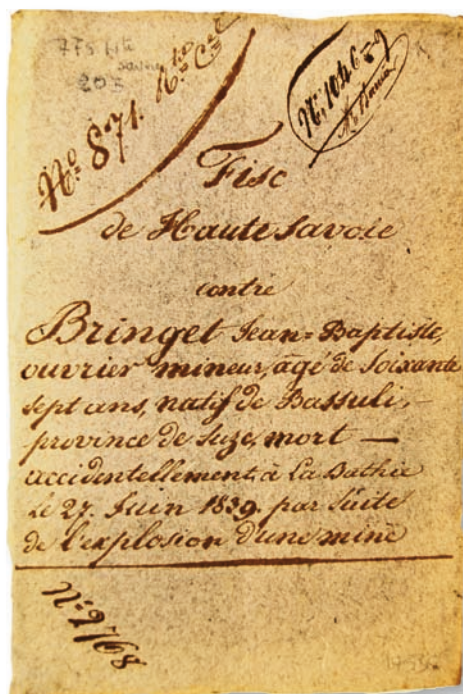 N.º 871.
N.º
Fisc
de Haute Savoie
contre
Bringet Jean=Baptiste,
ouvrier mineur, agé de Soixante
sept ans, natif de Bassuli,
province de Suze, mort —
accidentellement à La Bathie
Le 27. Juin 1839. par Suite
de l'explosion d'une mine
N.º 2768